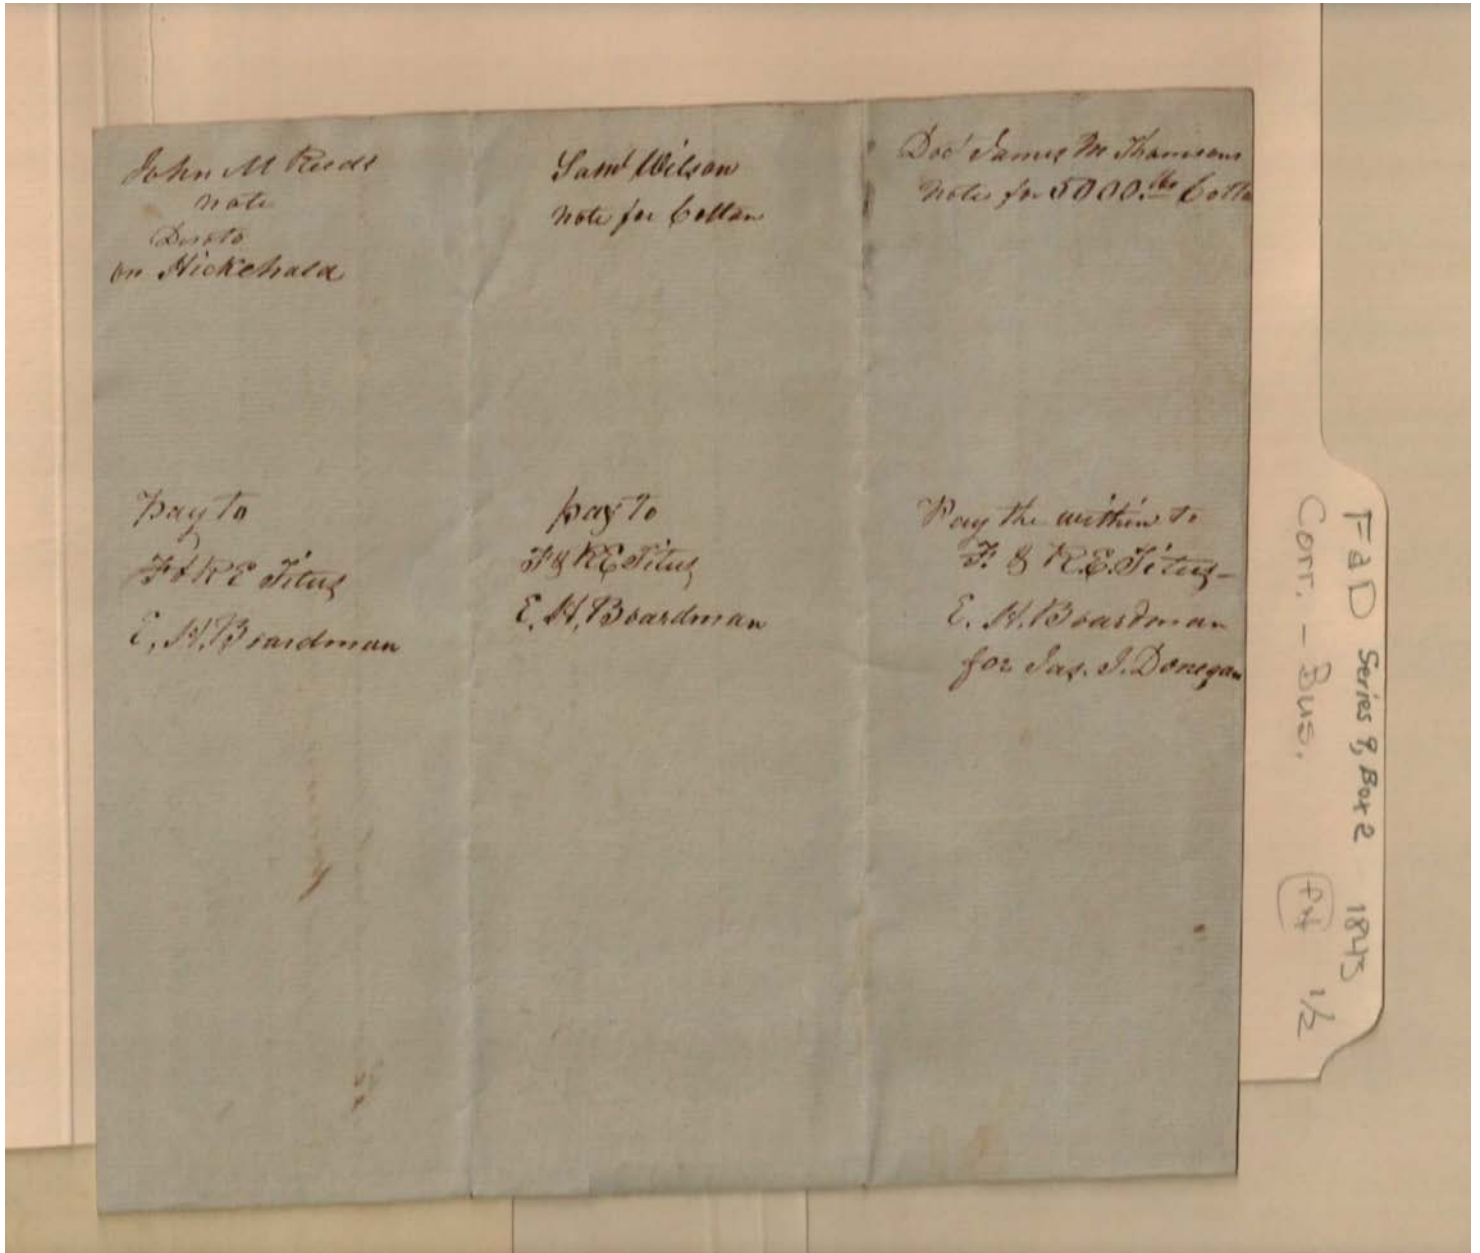 John M Reeds
note
Desoto
on Hickehala
pay to
F & R E Titus
E. H. Boardman
Saml Wilson
note for Cotton
pay to
F & R E Titus
E. H. Boardman
Doct James M Thomsons
note for 5000 lbs Cotto
Pay the within to
F. & R. E. Titus –
E. H. Boardman
for Jas. J. Donegan
F & D Series 9, Box 2 1843
Corr. – Bus. 1/2